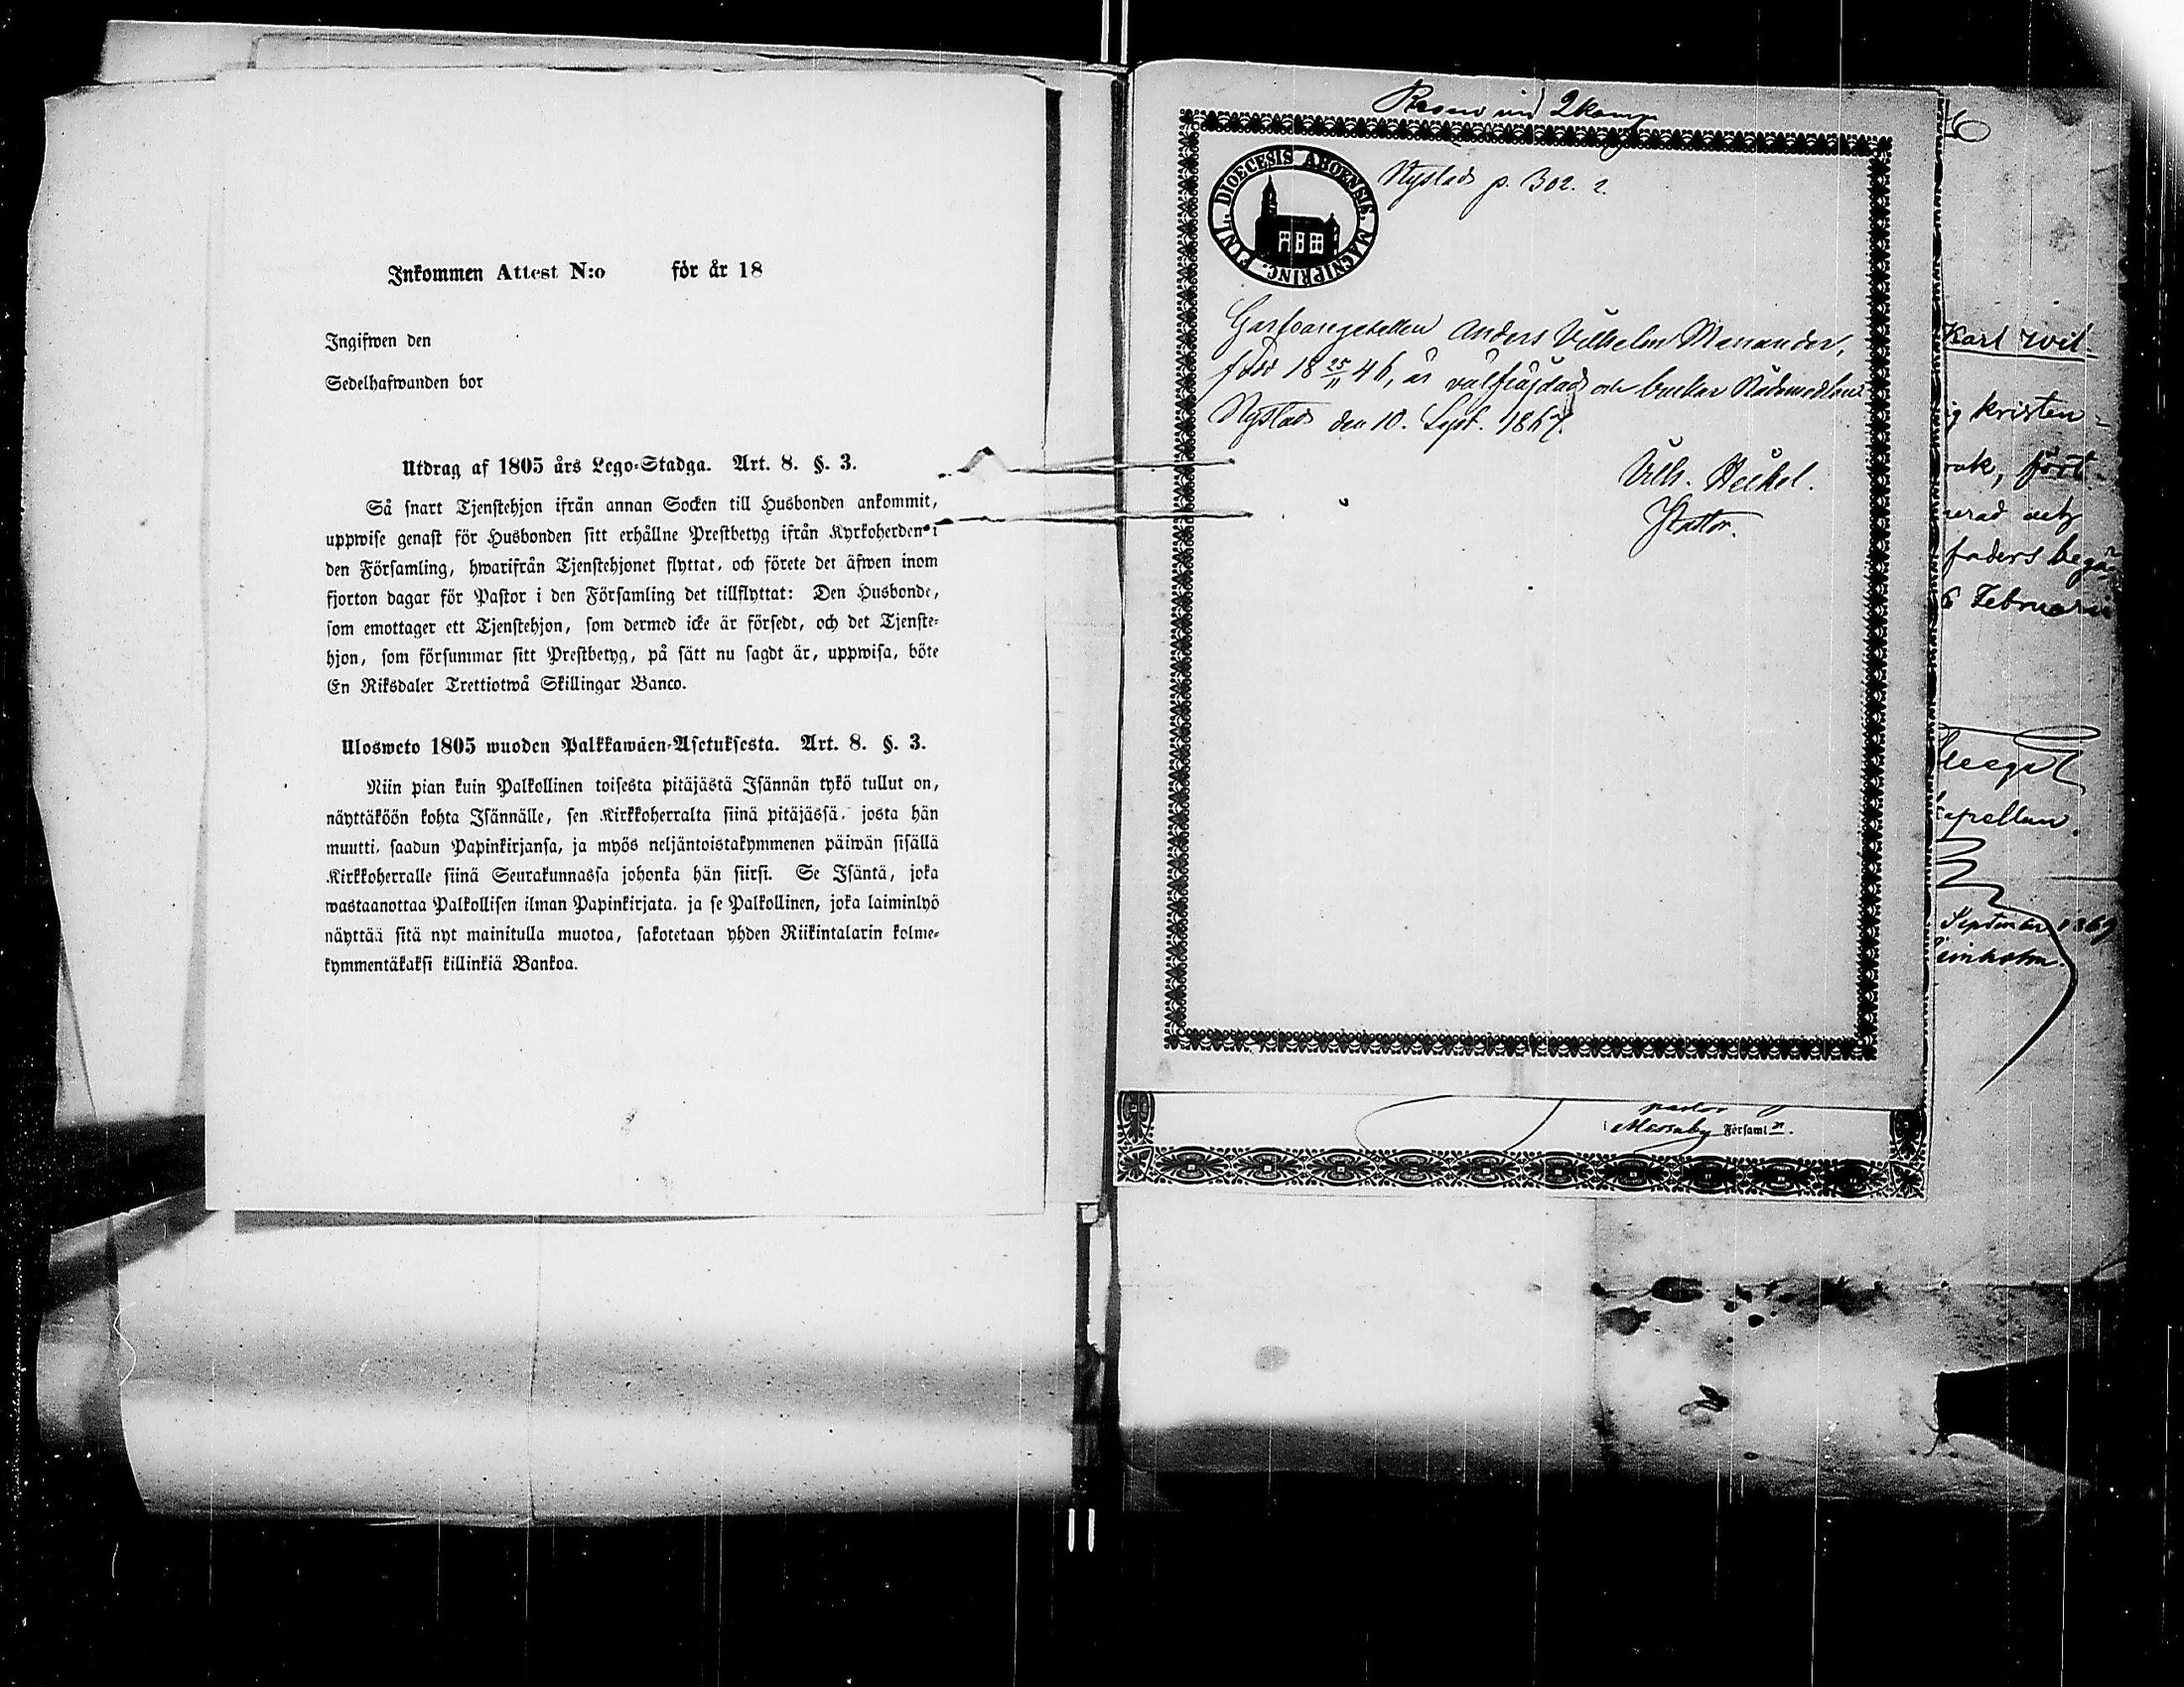 Inkommen Attest N:o för år 18
Ingifwen den
Sedelhafwanden bor
Utdrag af 1805 års Lego-Stadga. Art. 8. §. 3.
Så snart Tjenstehjon ifrån annan Socken till Husbonden ankommit,
uppwise genast för Husbonden sitt erhållne Prestbetyg ifrån Kyrkoherden i
den Församling, hwarifrån Tjenstehjonet flyttat, och förete det äfwen inom
fjorton dagar för Pastor i den Församling det tillflyttat: Den Husbonde,
som emottager ett Tjenstehjon, som dermed icke är försedt, och det Tjenste-
hjon, som försummar sitt Prestbetyg, på sätt nu sagdt är, uppwisa, böte
En Riksdaler Trettiotwå Skillingar Banco.
Ulosweto 1805 wuoden Palkkawäen-Asetuksesta. Art. 8. §. 3.
Niin pian kuin Palkollinen toisesta pitäjästä Isännän tykö tullut on,
näyttäköön kohta Isännälle, sen Kirkkoherralta siinä pitäjässä, josta hän
muutti, saadun Papinkirjansa, ja myös neljäntoistakymmenen päiwän sisällä
Kirkkoherralle siinä Seurakunnassa johonka hän siirsi. Se Isäntä, joka
wastaanottaa Palkollisen ilman Papinkirjata, ja se Palkollinen, joka laiminlyö
näyttää sitä nyt mainitulla muotoa, sakotetaan yhden Riikintalarin kolme-
kymmentäkaksi killinkiä Bankoa.
2 komp
DIOECESIS ABOENSIS, MAGNIPRINC. FINL.
Nystads p. 302.
Garfvaregesellen Anders Vilhelm Menander,
född 18 25/11 46, är välfräjdad och brukar Nådemedlen
Nystad den 10. Sept. 1867.
Vilh. Heikel.
Pastor.
pastor
Församl n.
Karl Wil-
ig kristen-
fört
faders begä-
6 Februarii
Kapellan.
Septmber 1869